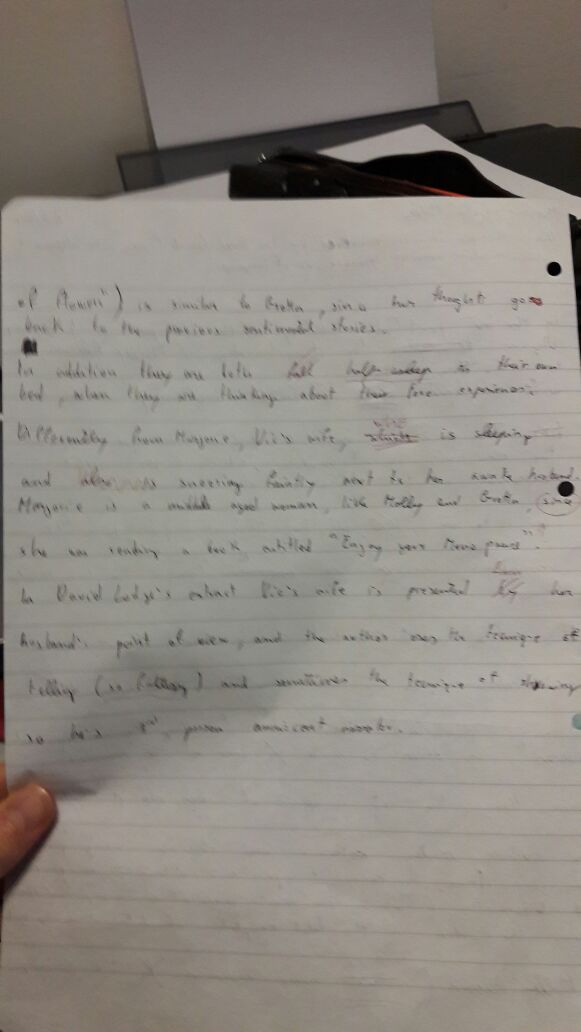 of Flowers") is similar to Gretta, since her thoughts go
back to the previous sentimental stories.
In addition they are both half asleep in their own
bed, when they are thinking about their love experiences.
Differently from Marjorie, Vic's wife, is sleeping
and also is snoring faintly next to her awake husband.
Marjorie is a middle aged woman, like Molly and Gretta, since
she was reading a book entitled "Enjoy your Menopause".
In David Lodge's extract Vic's wife is presented from her
husband's point of view, and the author uses the tecnique of
telling (so ) and sometimes the tecnique of showing
so he's 3rd person omniscent narrator.